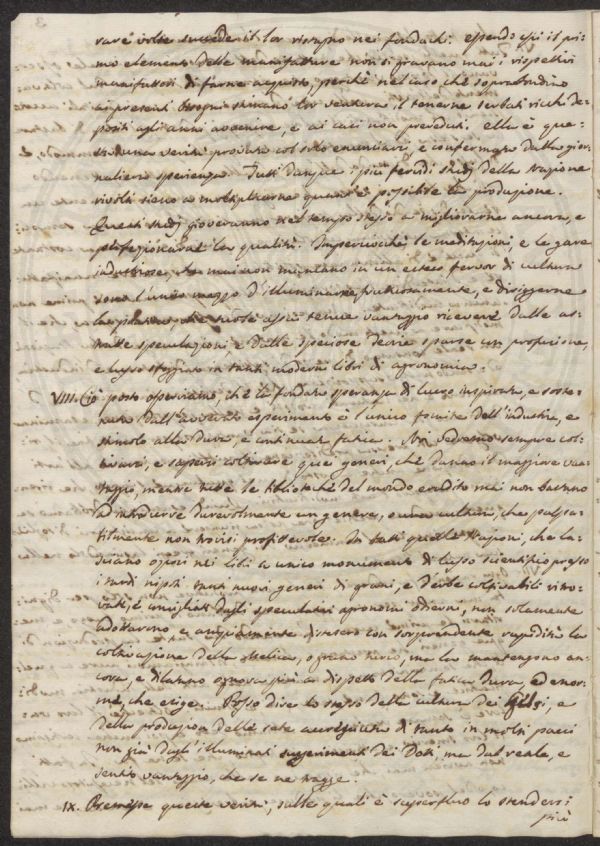 rare volte succede il lor ristagno nei fondachi: essendo essi il pri-
mo elemento delle manifatture non si gravano mai i rispettivi
manifattori di farne acquisto, perchè nel caso che soprabondino
ai presenti bisogni stimano lor ventura il tenerne serbati ricchi de-
positi agli anni avvenire, e ai casi non preveduti. ella è que-
sta una verità provata col solo enunciarsi, e confermata dalla gior-
naliera sperienza. Tutti dunque i più fervidi studj della Nazione
rivolti sieno a moltiplicarne quant'è possibile la produzione.
Questi studj gioveranno nel tempo stesso a migliorarne ancora, e
perfezionarne la qualità. Imperciocchè le meditazioni, e le gare
industriose, che mai non mancano in un esteso fervor di cultura
sono l'unico mezzo d'illuminarne fruttuosamente, e diriggerne
la pratica, che suole assai tenue vantaggio ricevere dalle as-
tratte speculazioni e dalle speciose teorie sparse con profusione,
e lusso sfoggiato in tanti moderni libri di agronomia.
VIII. Ciò posto osserviamo, che la fondata speranza di lucro inspirata, e soste-
nuta dall'avverati esperimenti è l'unico fomite dell'industria, e
stimolo alla dura, e continuata fatica. Noi vediamo sempre col-
tivarsi, e sapersi coltivare que' generi, che danno il maggiore van-
taggio, mentre tutte le biblioteche del mondo erudito mai non bastano
a introdurre durevolmente un genere, o una cultura, che palpa-
bilmente non trovisi profittevole. In fatti quelle Nazioni, che la-
sciano oziosi nei libri a unico monumento di lusso scientifico presso
i tardi nipoti tanti nuovi generi di grani, e d'erbe coltivabili ritro-
vati, e consigliati dagli speculatori agronomi odierni, non solamente
adottarono, e ampiamente distesero con sorprendente rapidità la
coltivazione della Melica, o grano turco, ma la mantengono an-
cora, e dilatano ognora più a dispetto della fatica dura, ed enor-
me, che esige. Posso dire lo stesso della cultura dei Gelsi, e
della produzion delle sete accresciuta di tanto in molti paesi
non già dagli illuminati suggerimenti dei Dotti, ma dal reale, e
sentito vantaggio, che se ne tragge.
IX. Premesse queste verità, sulle quali è superfluo lo stendersi
più